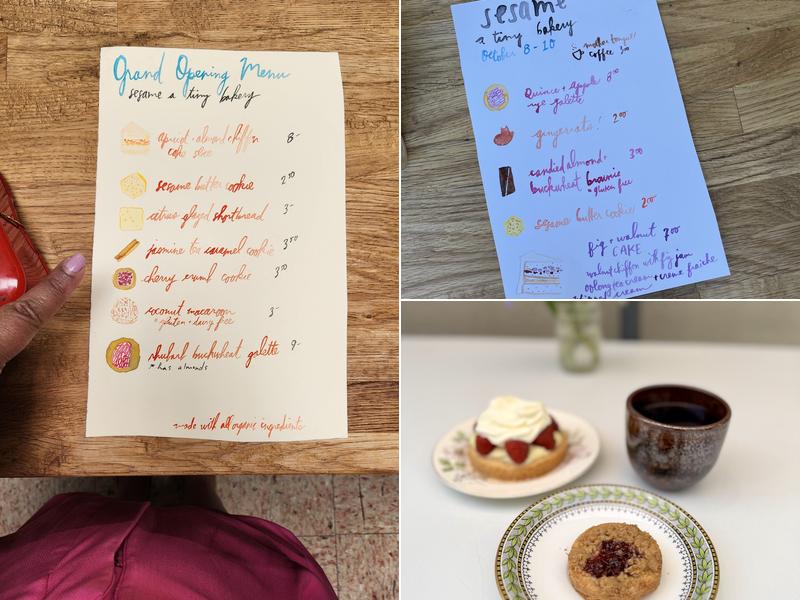 Grand Opening Menu
sesame a tiny bakery
apricot + almond chiffon 8-
cake slice
sesame butter cookie 2
citrus glazed shortbread 3-
jasmine tea caramel cookie 3⁵⁰
cherry crumb cookie 3⁵⁰
coconut macaroon 3-
*gluten + dairy free
rhubarb buckwheat galette 9-
* has almonds
made with all organic ingredients
sesame
a tiny bakery
October 8-10
coffee 3⁰⁰
Quince + apple 8⁰⁰
rye galette
gingersnaps! 2⁰⁰
candied almond + 3⁰⁰
buckwheat brownie
*gluten free
sesame butter cookie 2⁰⁰
fig + walnut 7⁰⁰
CAKE
walnut chiffon with fig jam
oolong tea cream + creme fraiche
cream